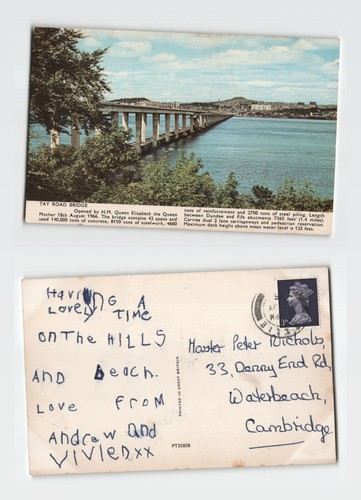 TAY ROAD BRIDGE
Opened by H.M. Queen Elizabeth the Queen
Mother 18th August 1966. The bridge contains 42 spans and
used 140,000 tons of concrete, 8150 tons of steelwork, 4600
tons of reinforcement and 2700 tons of steel piling. Length
between Dundee and Fife abutments 7365 feet (1.4 miles).
Carries dual 2 lane carriageways and pedestrian reservation.
Maximum deck height above mean water level is 125 feet.
Having A
Lovely Time
on the HILLS
AND Beach.
Love From
Andrew and
VIVIENXX
PRINTED IN GREAT BRITAIN
PT35858
Master Peter Nichols,
33, Denny End Rd,
Waterbeach,
Cambridge.